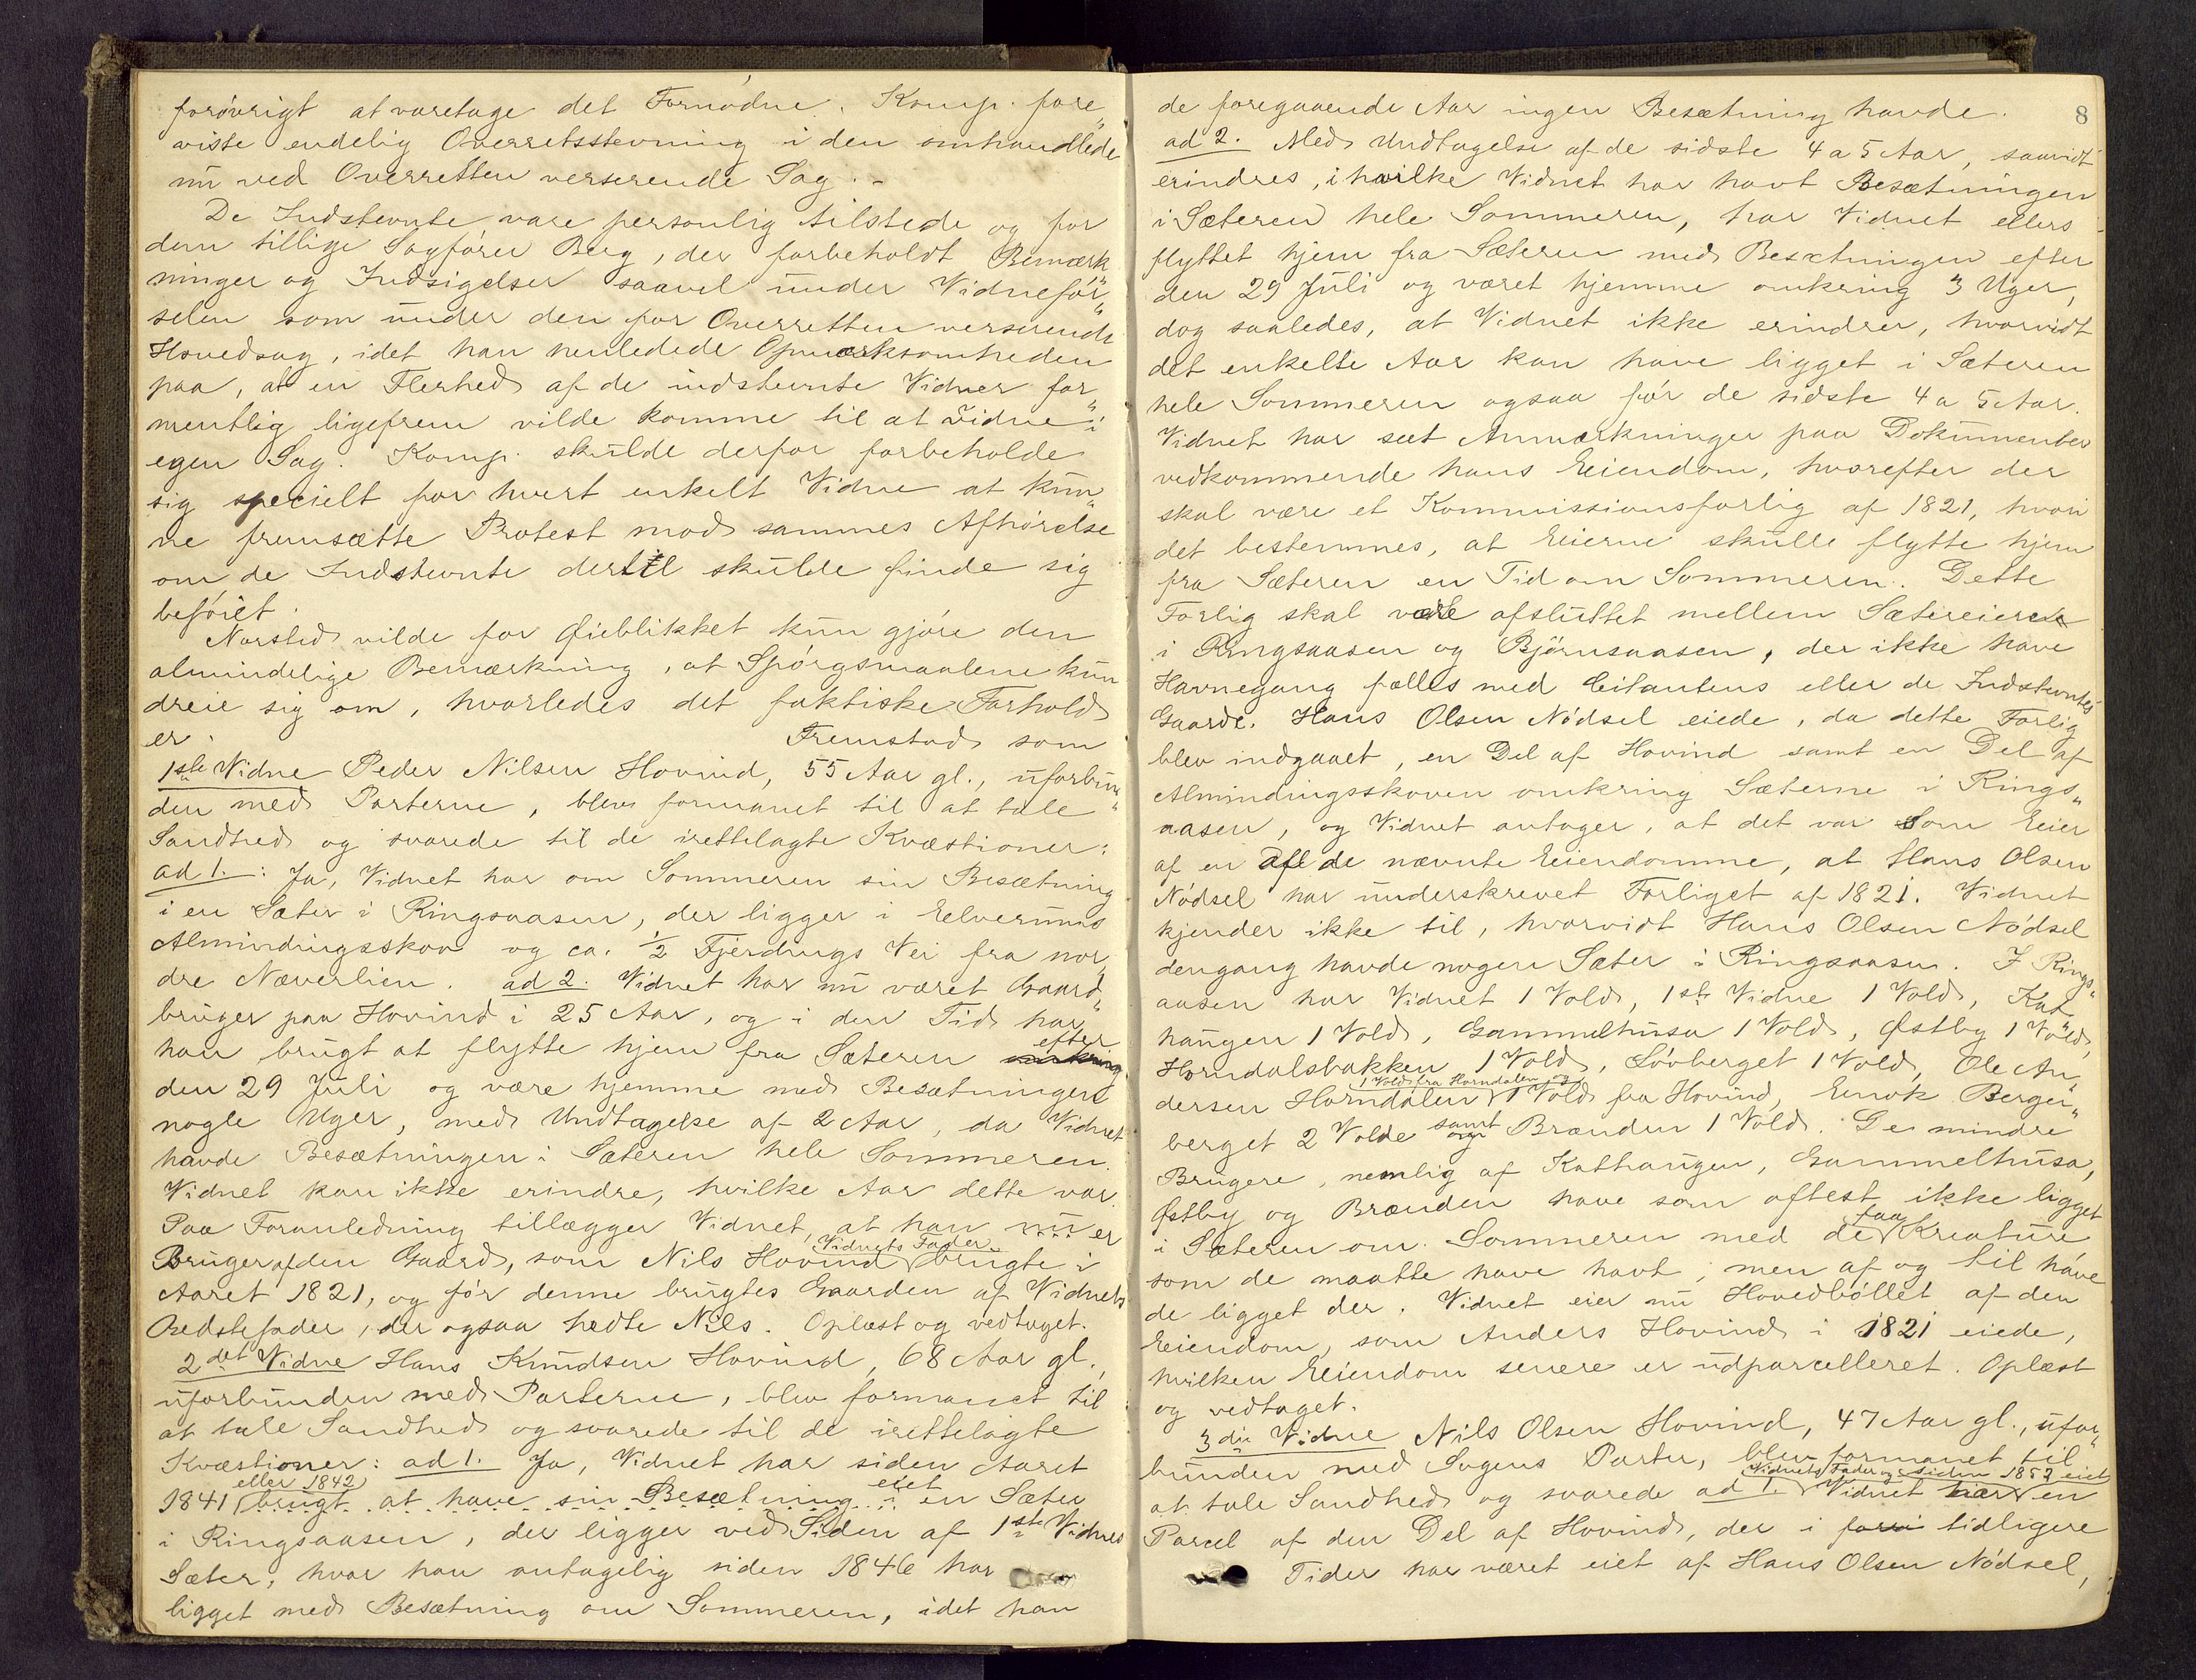 forøvrigt at varetage det Fornødne. Komp. fore„
viste endelig Overretsstevning i den omhandlede
nu ved Overretten verserende Sag. -
De Indstevnte vare personlig tilstede og for
dem tillige Sagfører Berg, der forbeholdt Bemærk„
ninger og Indsigelser saavel under Vidneför„
selen som under den for Overretten verserende
Hovedsag, idet han henledede Opmærksomheden
paa, at en Flerhed af de indstevnte Vidner for„
mentlig ligefrem vilde komme til at vidne i
egen Sag. Komp. skulde derfor forbeholde
sig specielt for hvert enkelt Vidne at kun„
ne fremsætte Protest mod sammes Afhörelse
om de Indstevnte dertil skulde finde sig
beföiet.
Norsted vilde for Øieblikket kun gjöre den
almindelige Bemærkning, at Spörgsmaalene kun
dreie sig om, hvorledes det faktiske Forhold
er. Fremstod som
1ste Vidne Peder Nilsen Hovind, 55 Aar gl., uforbun„
den med Parterne, blev formanet til at tale
Sandhed og svarede til de irettelagte Kvæstioner:
ad 1.: Ja, Vidnet har om Sommeren sin Besætning
i en Sæter i Ringsaasen, der ligger i Elverums
Almindingsskov og ca. 1/2 Fjerdings Vei fra nor„
dre Næverlien. ad 2. Vidnet har nu været Gaard„
bruger paa Hovind i 25 Aar, og i den Tid har
efter
han brugt at flytte hjem fra Sæteren omkring
den 29 Juli og være hjemme med Besætningen
nogle Uger, med Undtagelse af 2 Aar, da Vidnet
havde Besætningen i Sæteren hele Sommeren.
Vidnet kan ikke erindre, hvilke Aar dette var.
Paa Foranledning tillægger Vidnet, at han nu er
Vidnets Fader
Bruger af den Gaard, som Nils Hovind brugte i
Aaret 1821, og för denne brugtes Gaarden af Vidnets
Bedstefader, der ogsaa hedte Nils. Oplæst og vedtaget.
2det Vidne Hans Knudsen Hovind, 68 Aar gl.,
uforbunden med Parterne, blev formanet til
at tale Sandhed og svarede til de irettelagte
Kvæstioner: ad 1. Ja, Vidnet har siden Aaret
eller 1842 eiet
1841 brugt at have sin Besætning i en Sæter
i Ringsaasen, der ligger ved Siden af 1ste Vidnes
Sæter, hvor han antagelig siden 1846 har
ligget med Besætning om Sommeren, idet han
8
de foregaaende Aar ingen Besætning havde.
ad 2. Med Undtagelse af de sidste 4 a 5 Aar, saavidt
erindres, i hvilke Vidnet har havt Besætningen
i Sæteren hele Sommeren, har Vidnet ellers
flyttet hjem fra Sæteren med Besætningen efter
den 29 Juli og været hjemme omkring 3 Uger,
dog saaledes, at Vidnet ikke erindrer, hvorvidt
det enkelte Aar kan have ligget i Sæteren
hele Sommeren ogsaa för de sidste 4 a 5 Aar.
Vidnet har seet Anmærkninger paa Dokumenter
vedkommende hans Eiendom, hvorefter der
skal være et Kommissionsforlig af 1821, hvori
det bestemmes, at Eierne skulle flytte hjem
fra Sæteren en Tid om Sommeren. Dette
Forlig skal være afsluttet mellem Sætereierne
i Ringsaasen og Björnsaasen, der ikke have
Havnegang fælles med Citantens eller de Indstevntes
Gaarde. Hans Olsen Nödsel eiede, da dette Forlig
blev indgaaet, en Del af Hovind samt en Del af
Almindingsskoven omkring Sæterne i Rings„
aasen, og Vidnet antager, at det var som Eier
af en af de nævnte Eiendomme, at Hans Olsen
Nödsel har underskrevet Forliget af 1821. Vidnet
kjender ikke til, hvorvidt Hans Olsen Nödsel
dengang havde nogen Sæter i Ringsaasen. I Rings„
aasen har Vidnet 1 Vold, 1ste Vidne 1 Vold, Kat„
haugen 1 Vold, Gammelhusa 1 Vold, Østby 1 Vold,
Horndalsbakken 1 Vold, Lövberget 1 Vold, Ole An„
1 Vold fra Horndalen og
dersen Horndalen 1 Vold fra Hovind, Enok Berger„
samt
berget 2 Volde og Brænden 1 Vold. De mindre
Brugere, nemlig af Kathaugen, Gammelhusa,
Østby og Brænden have som oftest ikke ligget
faa
i Sæteren om Sommeren med de Kreature
som de maatte have havt, men af og til have
de ligget der. Vidnet eier nu Hovedböllet af den
Eiendom, som Anders Hovind i 1821 eiede,
hvilken Eiendom senere er udparcelleret. Oplæst
og vedtaget.
3die Vidne Nils Olsen Hovind, 47 Aar gl., ufor„
bunden med Sagens Parter, blev formanet til
Vidnets Fader og siden 1852 eiet
at tale Sandhed og svarede ad 1. Vidnet har en
Parcel af den Del af Hovind, der i forri tidligere
Tider har været eiet af Hans Olsen Nödsel,